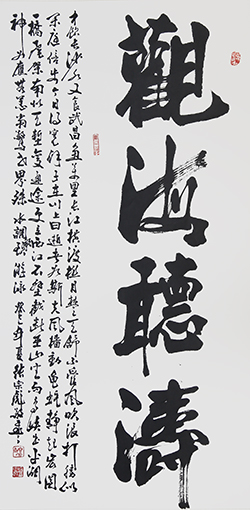 觀海聽濤
才飲長沙水又食武昌魚萬里長江橫渡極目楚天舒不管風吹浪打勝似
閒庭信步今日得寬余子在川上曰逝者如斯夫風檣動龜蛇靜起宏圖
一橋飛架南北天塹變通途更立西江石壁截斷巫山雲雨高峽出平湖
神女應無恙當驚世界殊水調歌頭游泳